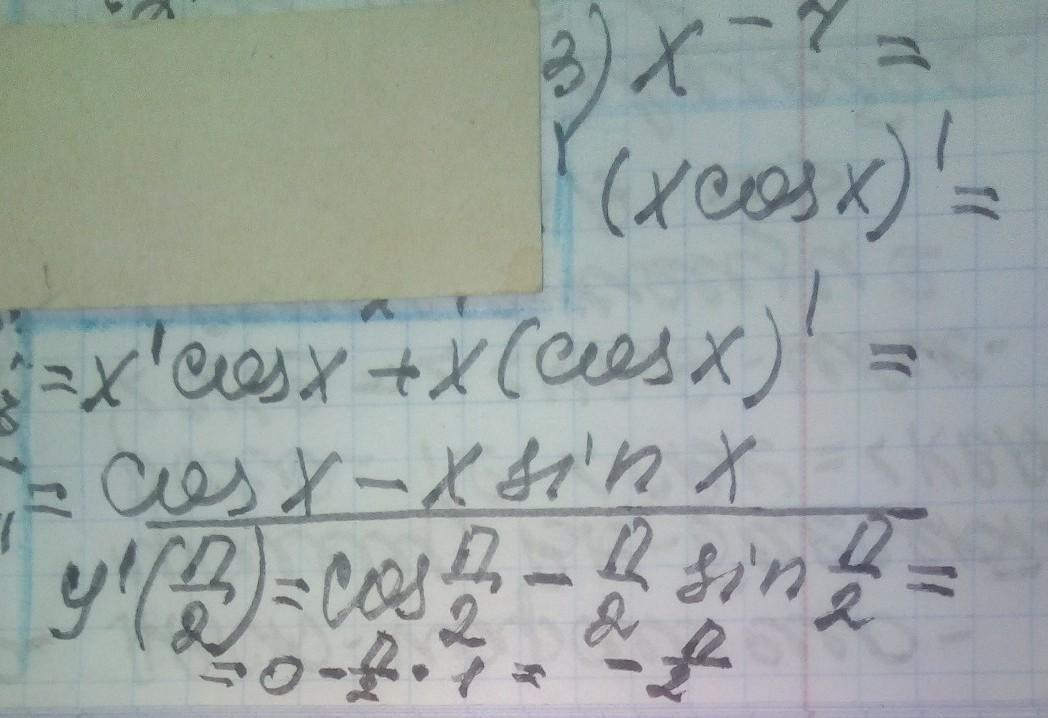 3) x⁻⁷ =
(x cos x)' =
= x' cos x + x (cos x)' =
= cos x - x sin x
y'(π/2) = cos π/2 - π/2 sin π/2 =
= 0 - π/2 · 1 = - π/2